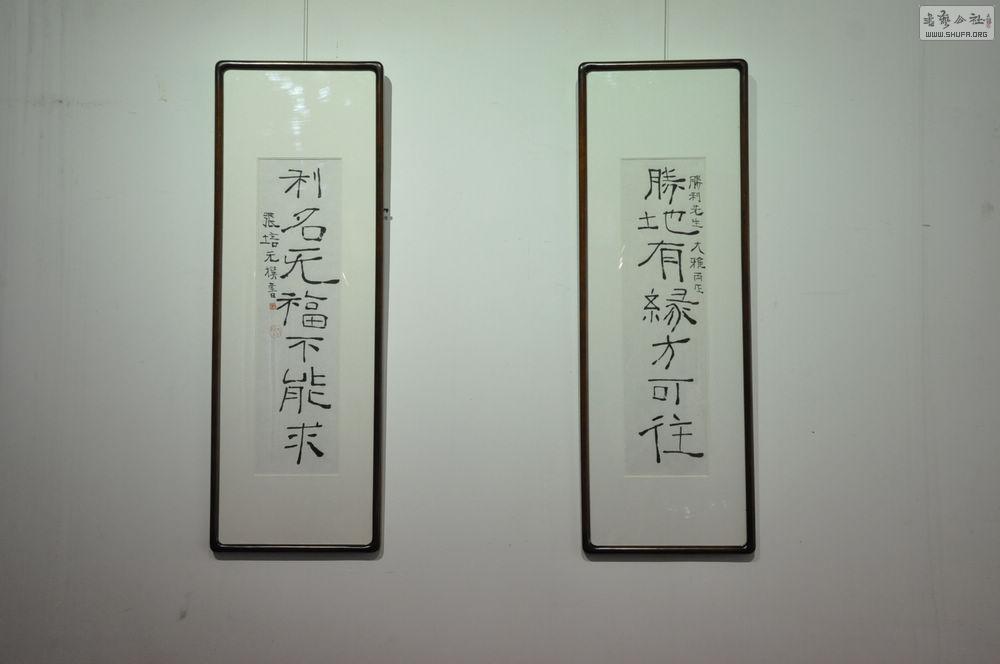 勝利先生大雅两正
勝地有緣方可往
利名无福不能求
張培元撰書
书艺公社
WWW.SHUFA.ORG